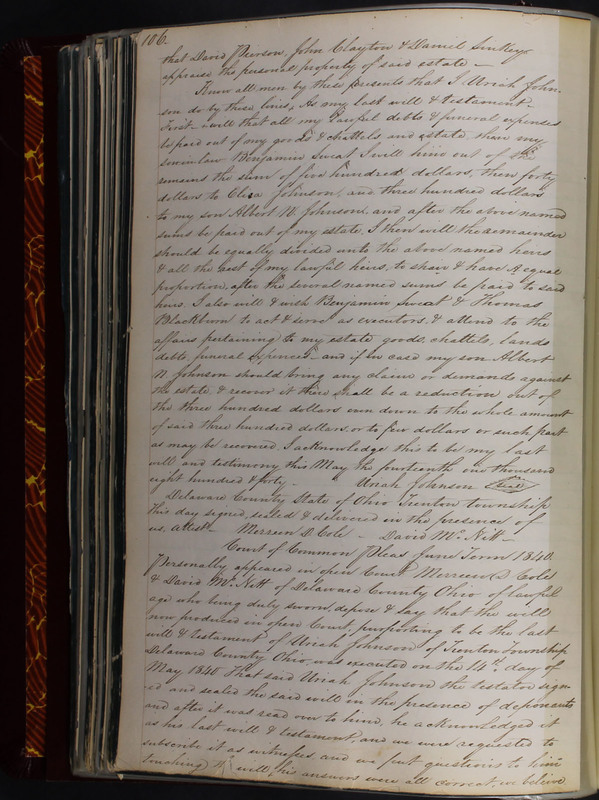 106.
that David Pierson, John Clayton & Daniel Sinkey
appraise the personal property of said estate —
Know all men by these presents that I Uriah John-
son do by these lines, As my last will & testament —
First — I will that all my lawful debts & funeral expenses
be paid out of my goods & chattels and estate, then my
son in law Benjamin Sweat I will him out of the
remains the sum of five hundred dollars, then forty
dollars to Eliza Johnson, and three hundred dollars
to my son Albert N. Johnson, and after the above named
sums be paid out of my estate, I then will the remainder
should be equally divided unto the above named heirs
& all the rest of my lawful heirs, to share & have A equal
proportion, after the several named sums be paid to said
heirs. I also will & wish Benjamin Sweat & Thomas
Blackburn to act & serve as executors, & attend to the
affairs pertaining to my estate goods, chattels, lands
debts, funeral expences — and if in case my son Albert
N. Johnson should bring any claim or demands against
the estate, & recover it there shall be a reduction out of
the three hundred dollars even down to the whole amount
of said three hundred dollars, or to few dollars or such part
as may be recovered. I acknowledge this to be my last
will and testimony this May the fourteenth one thousand
eight hundred & forty — Uriah Johnson Seal
Delaware County State of Ohio Trenton township
This day signed, sealed & delivered in the presence of
us, Attest — Merreen D. Cole — David McNitt —
Court of Common Pleas June Term 1840.
Personally appeared in open Court Merreen D Cole
& David McNitt of Delaware County Ohio of lawful
age who being duly sworn, depose & say that the will
now produced in open Court, purporting to be the last
will & testament of Uriah Johnson of Trenton township
Delaware County Ohio, was executed on the 14th day of
May 1840 That said Uriah Johnson the testator sign-
ed and sealed the said will in the presence of deponants
and after it was read over to him, he acknowledged it
as his last will & testament, and we were requested to
subscribe it as witnesses and we put questions to him
touching the will, his answers were all correct, we believe